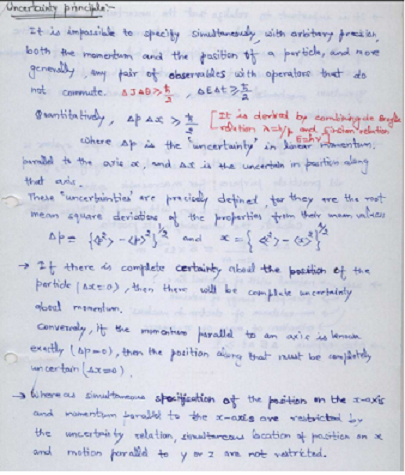 Uncertainty principle:-
→ It is impossible to specify simultaneously, with arbitrary precision,
both the momentum and the position of a particle, and more
generally, any pair of observables with operators that do
not commute. ΔJΔθ ≥ ħ/2, ΔEΔt ≥ ħ/2
Quantitatively, Δp Δx ≥ ħ/2 [It is derived by combining de Broglie
relation λ=h/p and Einstein relation
E=hν]
where Δp is the "uncertainty" in linear momentum,
parallel to the axis x, and Δx is the uncertain in position along
that axis.
These "uncertainties" are precisely defined, for they are the root
mean square deviations of the properties from their mean values
Δp = {<p²> - <p>²}^½ and x = {<x²> - <x>²}^½
→ If there is complete certainty about the position of the
particle (Δx=0), then there will be complete uncertainty
about momentum.
Conversely, if the momentum parallel to an axis is known
exactly (Δp=0), then the position along that must be completely
uncertain (Δx=∞).
→ Whereas simultaneous specification of the position on the x-axis
and momentum parallel to the x-axis are restricted by
the uncertainty relation, simultaneous location of position on x
and motion parallel to y or z are not restricted.